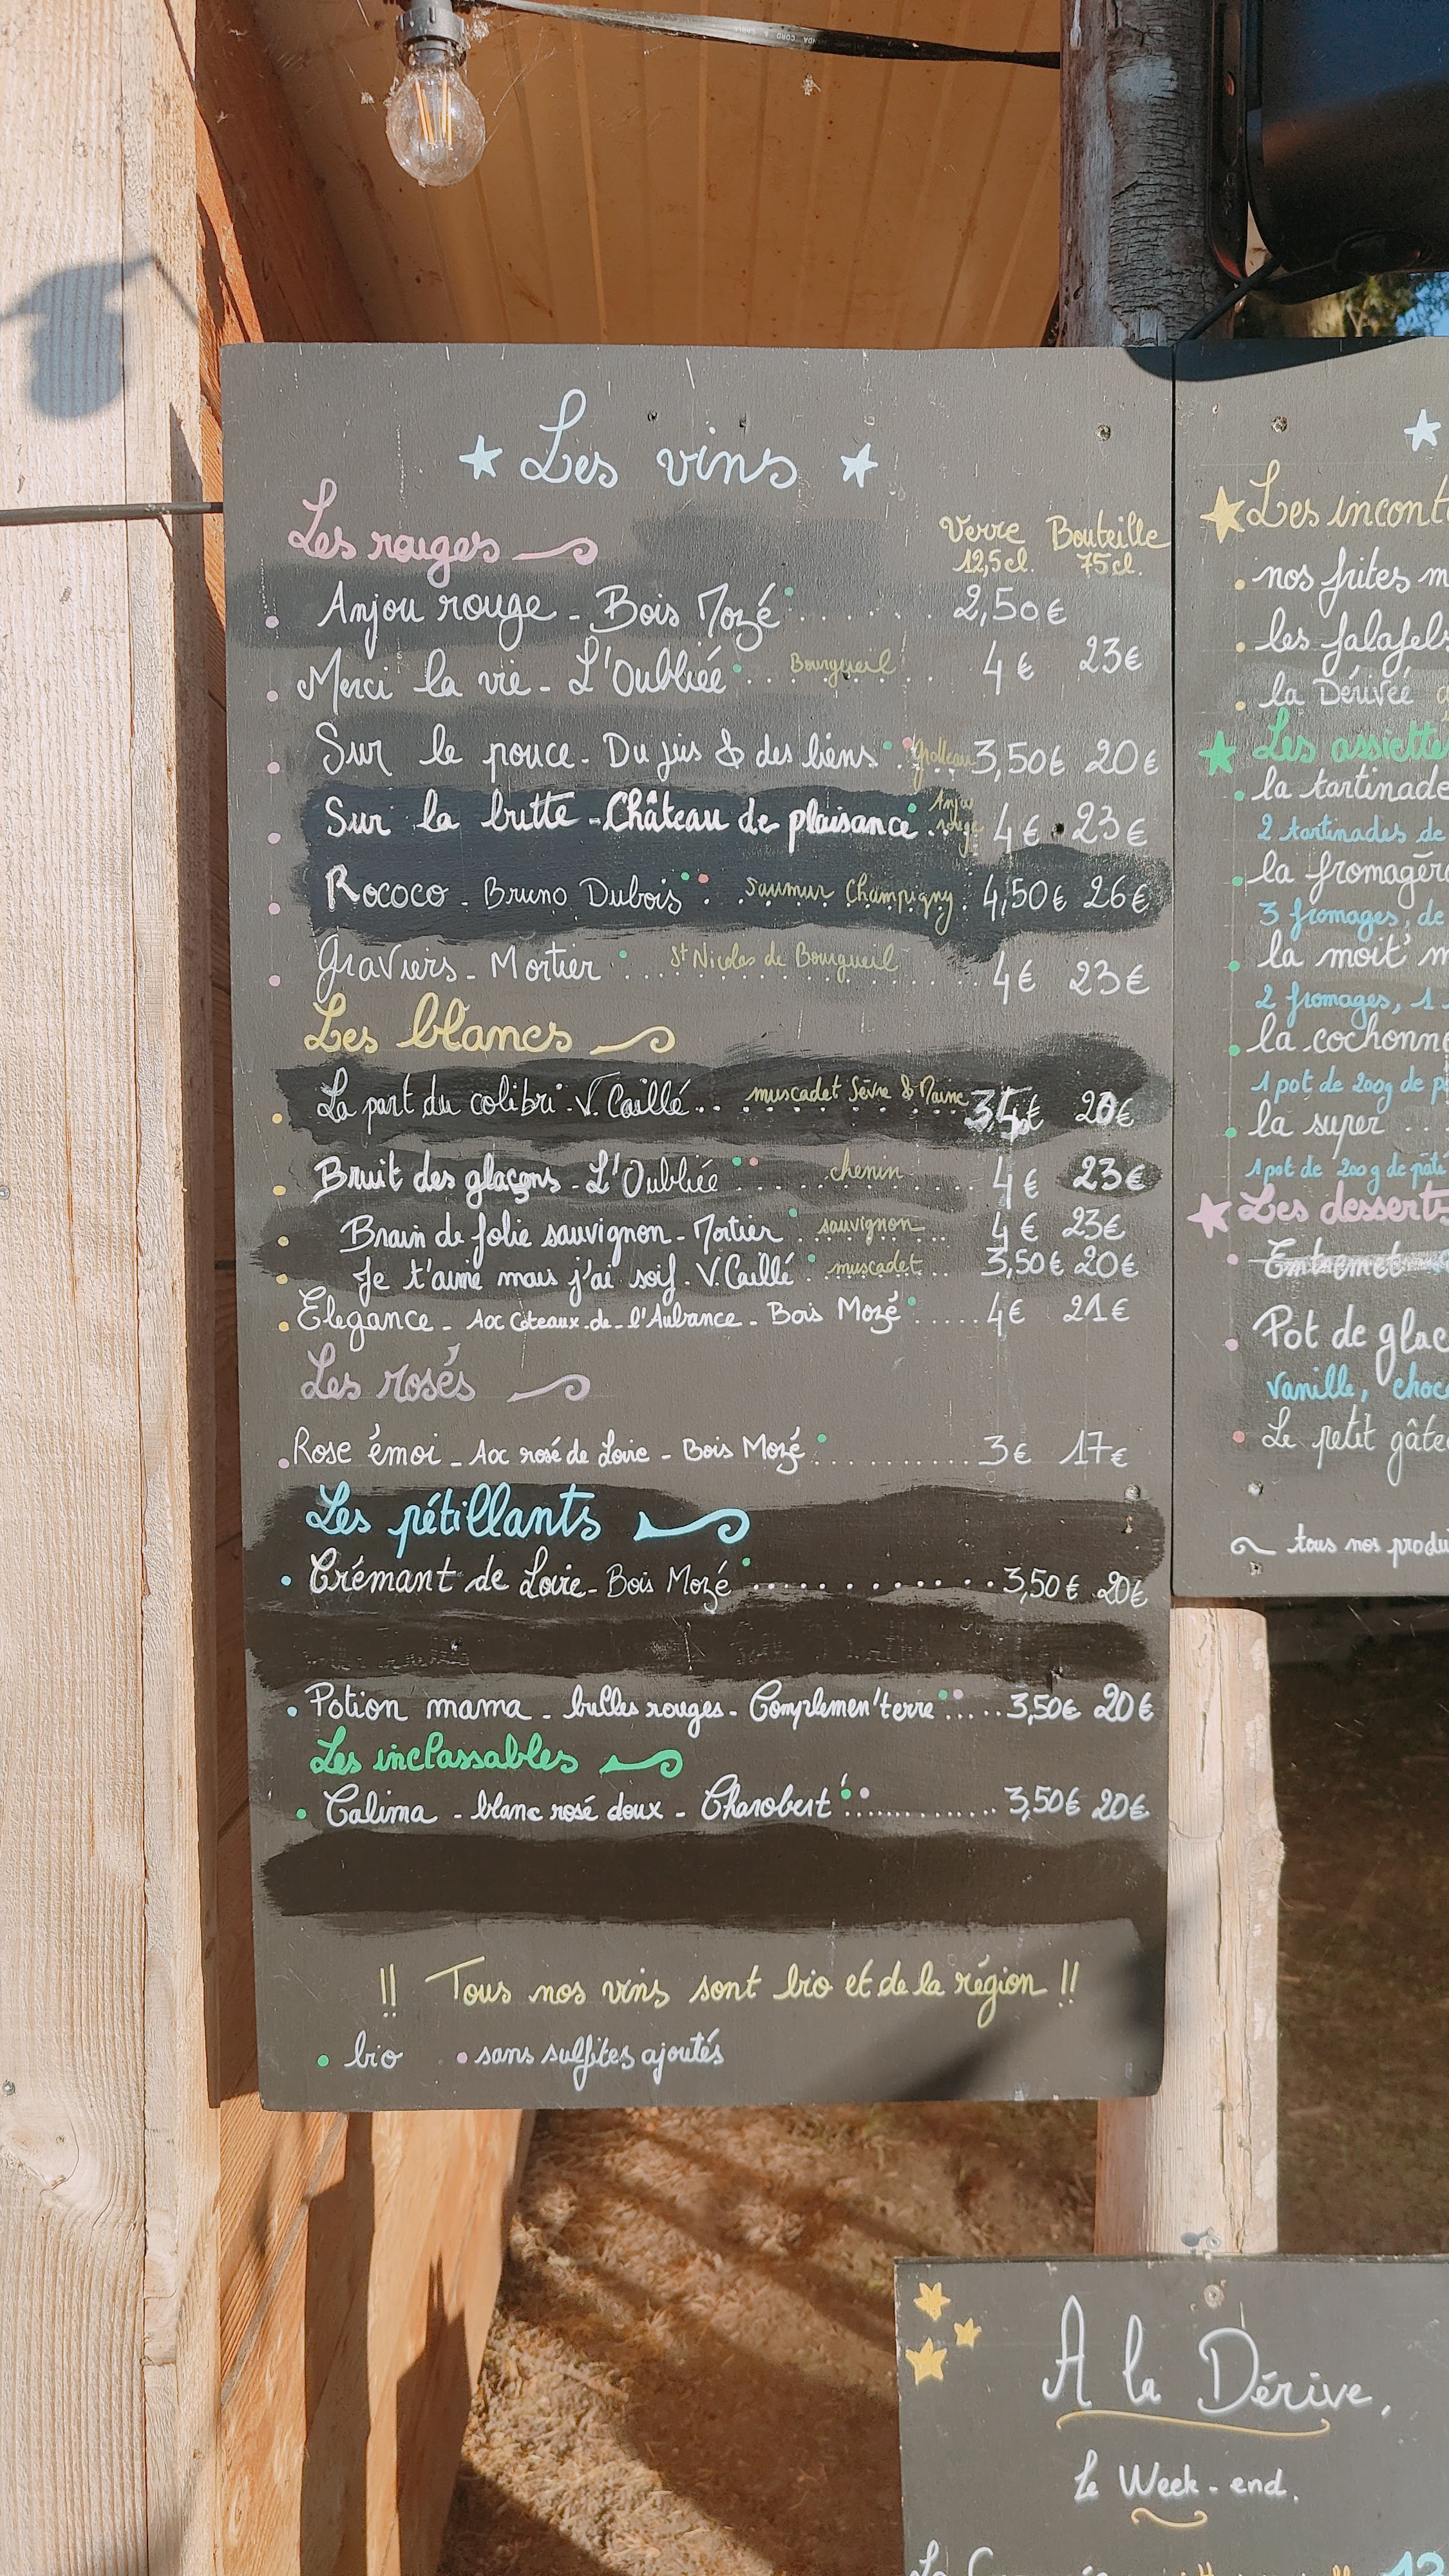 Les vins
Les rouges
Verre Bouteille
12,5cl. 75cl.
Anjou rouge - Bois Mozé 2,50€
Merci la vie - L'Oubliée Bourgueil 4€ 23€
Sur le pouce - Du jus & des liens Grolleau 3,50€ 20€
Sur la butte - Château de plaisance Anjou rouge 4€ 23€
Rococo - Bruno Dubois Saumur Champigny 4,50€ 26€
Graviers - Mortier St Nicolas de Bourgueil 4€ 23€
Les blancs
La part du colibri - V. Caillé muscadet Sèvre & Maine 20€
Bruit des glaçons - L'Oubliée chenin 4€ 23€
Brain de folie sauvignon - Mortier sauvignon 4€ 23€
Je t'aime mais j'ai soif - V. Caillé muscadet 3,50€ 20€
Élegance - Aoc Coteaux-de-l'Aubance - Bois Mozé 4€ 21€
Les rosés
Rose émoi - Aoc rosé de Loire - Bois Mozé 3€ 17€
Les pétillants
Crémant de Loire - Bois Mozé 3,50€ 20€
Potion mama - bulles rouges - Complemen'terre 3,50€ 20€
Les inclassables
Calima - blanc rosé doux - Charobert 3,50€ 20€
!! Tous nos vins sont bio et de la région !!
bio sans sulfites ajoutés
Les incont
nos frites m
les falafels
la Dérivée
Les assiette
la tartinade
2 tartinades de
la fromagère
3 fromages, de
la moit' m
2 fromages, 1
la cochonne
1 pot de 200g de p
la super
1 pot de 200g de pâté
Les desserts
Entremet
Pot de glac
vanille, choc
Le petit gâte
tous nos produ
A la Dérive,
Le Week-end.